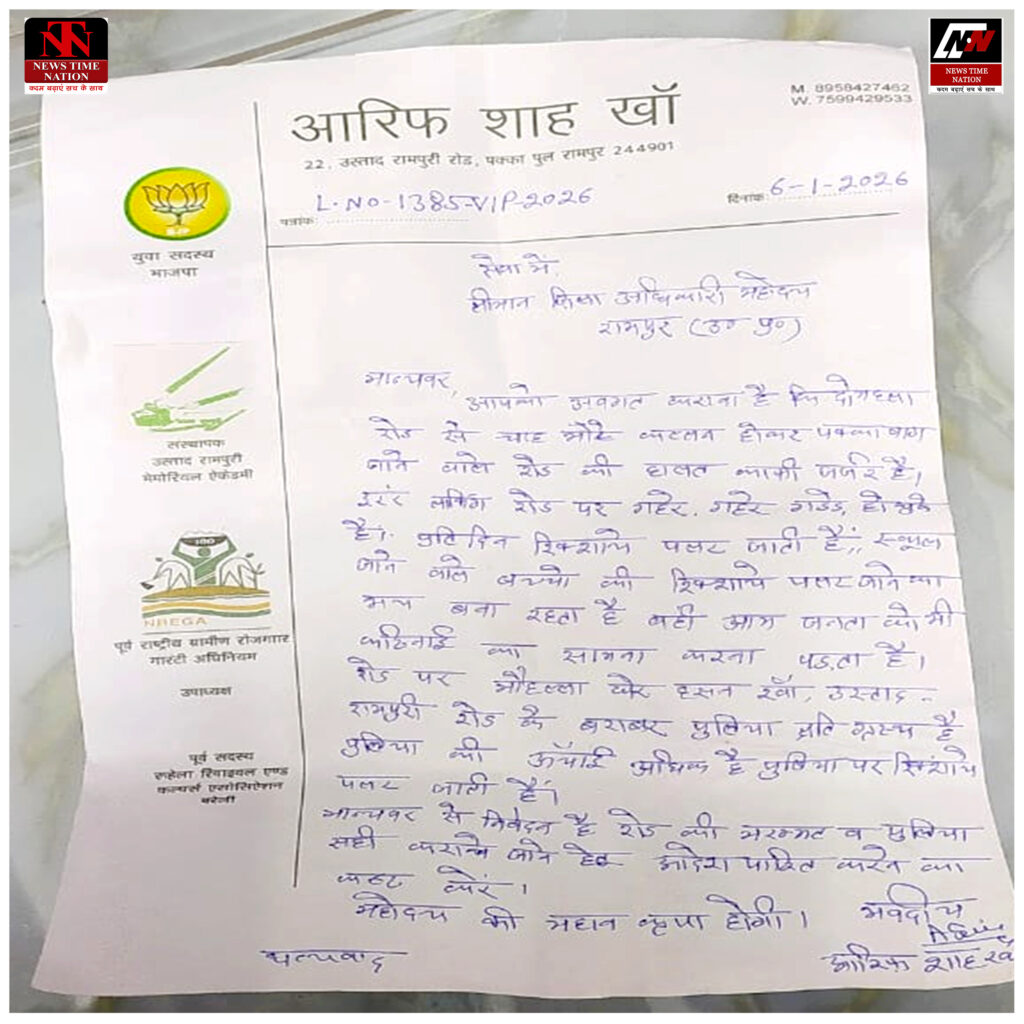 NTN
NEWS TIME
NATION
कदम बढ़ाएं सच के साथ
NTN
NEWS TIME
NATION
कदम बढ़ाएं सच के साथ
M. 8958427462
W. 7599429533
आरिफ शाह खाँ
22, उस्ताद रामपुरी रोड, पक्का पुल रामपुर 244901
पत्रांक: L.NO-1385-VIP-2026
दिनांक: 6-1-2026
BJP
युवा सदस्य
भाजपा
संस्थापक
उस्ताद रामपुरी
मेमोरियल ऐकेडमी
NREGA
पूर्व राष्ट्रीय ग्रामीण रोजगार
गारंटी अधिनियम
उपाध्यक्ष
पूर्व सदस्य
रूहेला रिवाइवल एण्ड
कल्चर्स एसोसिऐशन
बरेली
सेवा में,
श्रीमान जिला अधिकारी महोदय
रामपुर (उ० प्र०)
मान्यवर,
आपको अवगत कराना है कि दोमहला
रोड से चाह होकर पक्का बाग
जाने वाले रोड की हालत काफी जर्जर है।
रोड पर गहरे, गहरे गडडे, हो चुके
है।. प्रतिदिन रिक्शाये पलट जाती है,, स्कूल
जाने वाले बच्चो की रिक्शाये पलट जाने का
भय बना रहता है वही आम जनता को भी
कठिनाई का सामना करना पड़ता है।
रोड पर मौहल्ला घेर हसन खाँ, उस्ताद-
रामपुरी रोड के बराबर पुलिया क्षति ग्रस्त है
पुलिया की ऊँचाई अधिक है पुलिया पर रिक्शाये
पलट जाती हैं।
मान्यवर से निवेदन है रोड की मरम्मत व पुलिया
सही कराये जाने हेतु आदेश पारित करने का
कष्ट करें।
महोदय की महान कृपा होगी।
भवदीय
धन्यवाद
आरिफ शाह खाँ